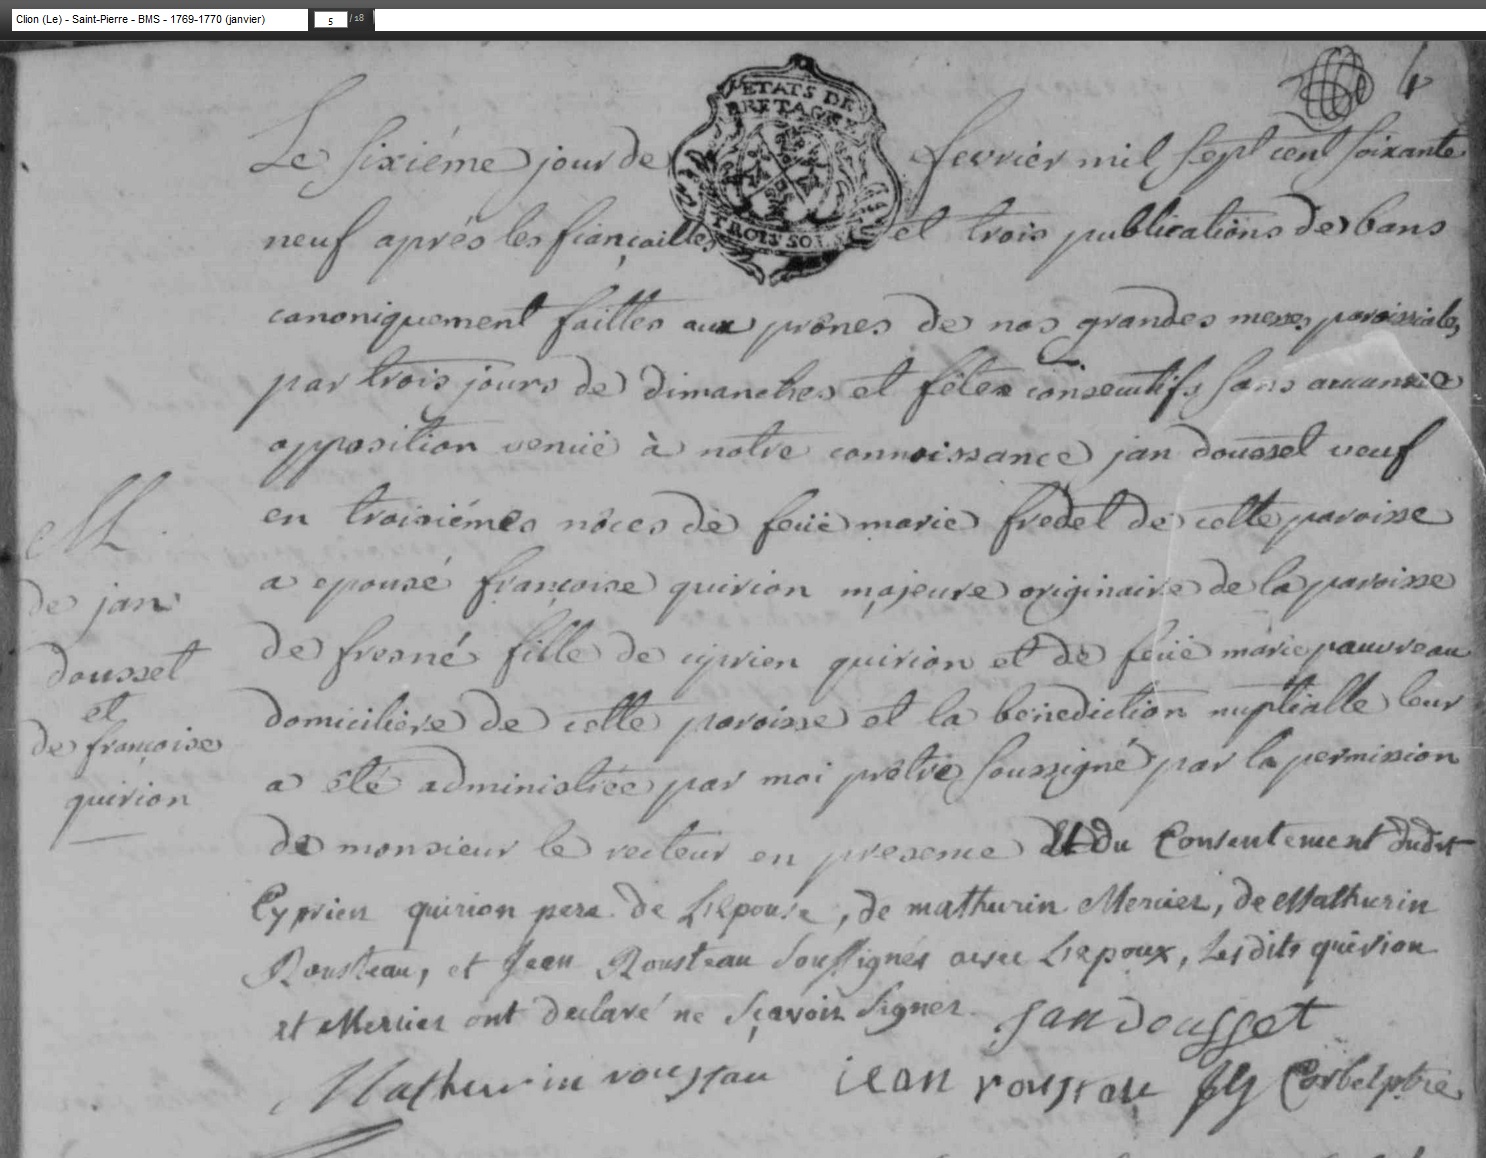 Clion (Le) - Saint-Pierre - BMS - 1769-1770 (janvier)
5 / 18
ETATS DE
BRETAGNE
TROIS SOLS
Le sixiéme jour de fevrier mil sept cent soixante
neuf aprés les fiançailles et trois publications de bans
canoniquement faittes aux prônes de nos grandes messes paroissiales
par trois jours de dimanches et fêtes consecutifs sans aucune
opposition venüe à notre connoissance jan dousset veuf
en troisiémes nôces de feüe marie fredet de cette paroisse
a epousé françoise quirion majeure originaire de la paroisse
de fresné fille de ciprien quirion et de feüe marie pauvreau
domiciliére de cette paroisse et la benediction nuptialle leur
a été administrée par moi prêtre soussigné par la permission
de monsieur le recteur en presence et du Consentement dudit
Cyprien quirion pere de L'epouse, de mathurin Mercier, de Mathurin
Rousteau, et Jean Rousteau Soussignés avec L'epoux, Lesdits quirion
et Mercier ont declaré ne sçavoir signer. Jan dousset
Mathurin roustau jean roustau Corbel ptre
M
de jan
dousset
et
de françoise
quirion